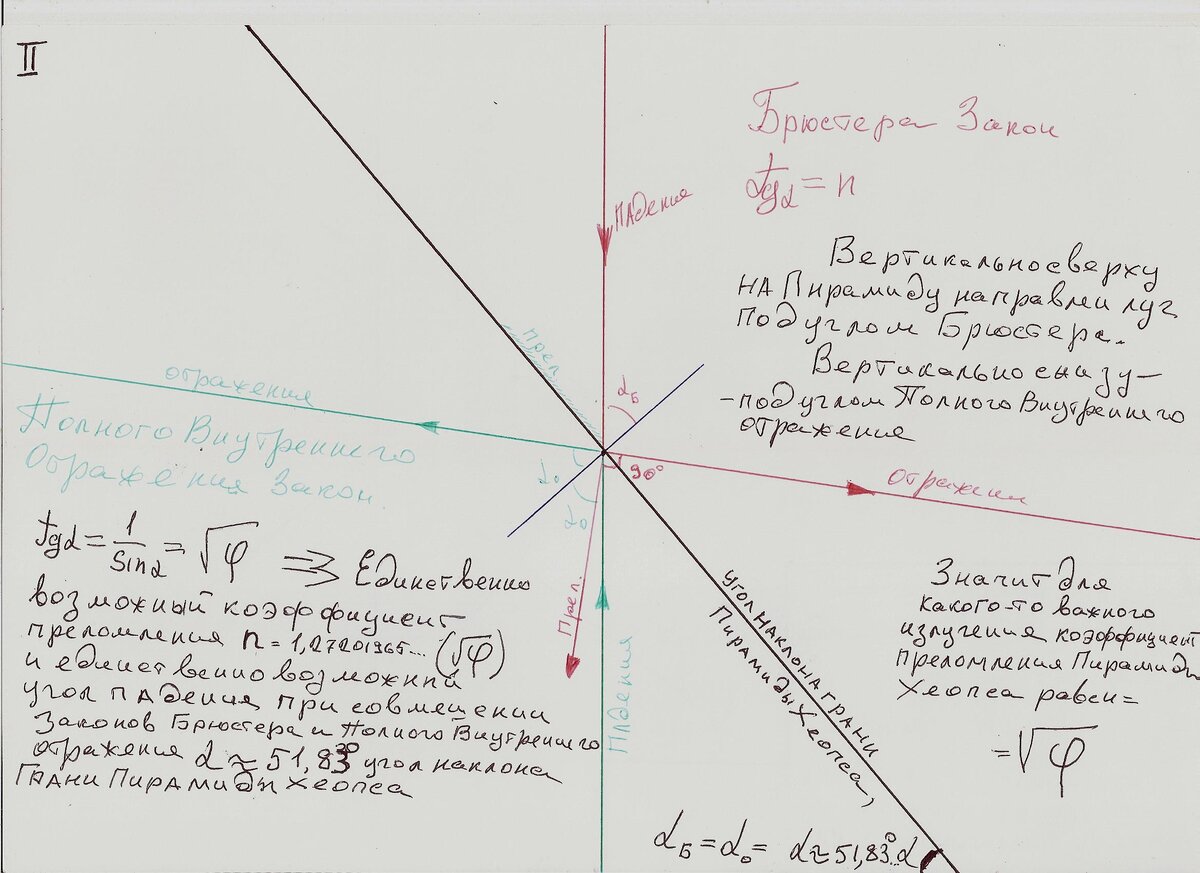 II
Брюстера Закон
tgα = n
Падения
Вертикально сверху
на Пирамиду направлен луч
под углом Брюстера.
Вертикально снизу –
– под углом Полного Внутреннего
отражения
прел.
αБ
отражения
Полного Внутреннего
Отражения Закон
α₀
α₀
90°
отражения
tgα = 1/sinα = √φ ⇒ Единственно
возможный коэффициент
преломления n = 1,27201965... (√φ)
и единственно возможный
угол падения при совмещении
Законов Брюстера и Полного Внутреннего
отражения α ≈ 51,83° угол наклона
Грани Пирамиды Хеопса
Прел.
Падения
угол наклона грани
Пирамиды Хеопса,
Значит для
какого-то важного
излучения коэффициент
преломления Пирамиды
Хеопса равен =
= √φ
αБ = α₀ = α ≈ 51,83° α